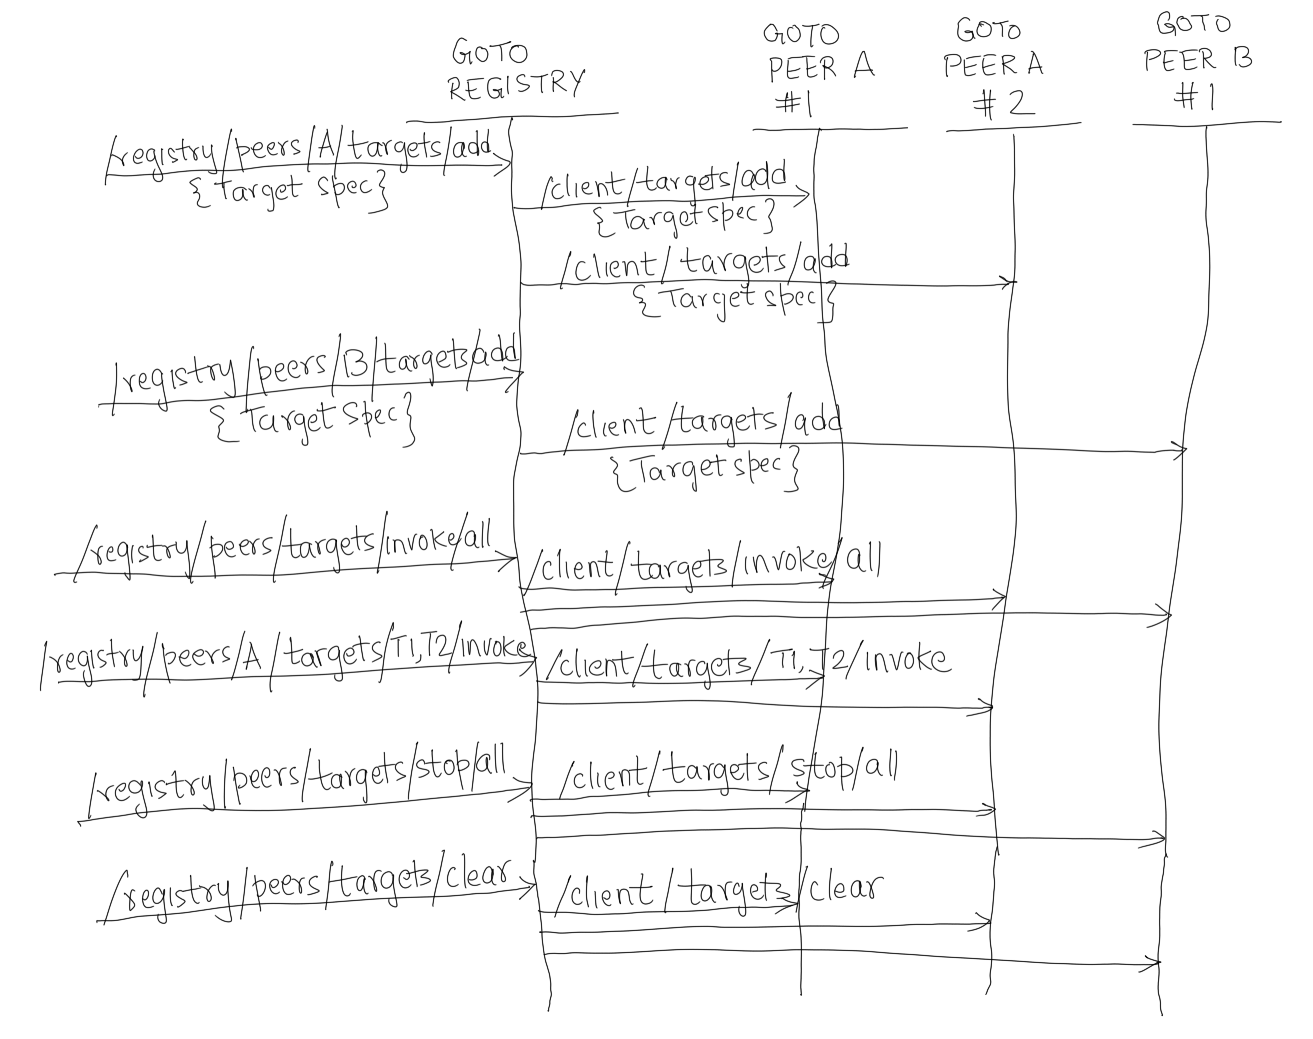 GOTO
REGISTRY
GOTO
PEER A
#1
GOTO
PEER A
#2
GOTO
PEER B
#1
/registry/peers/A/targets/add
{Target spec}
/client/targets/add
{Target spec}
/client/targets/add
{Target spec}
/registry/peers/B/targets/add
{Target Spec}
/client/targets/add
{Target spec}
/registry/peers/targets/invoke/all
/client/targets/invoke/all
/registry/peers/A/targets/T1,T2/invoke
/client/targets/T1,T2/invoke
/registry/peers/targets/stop/all
/client/targets/stop/all
/registry/peers/targets/clear
/client/targets/clear